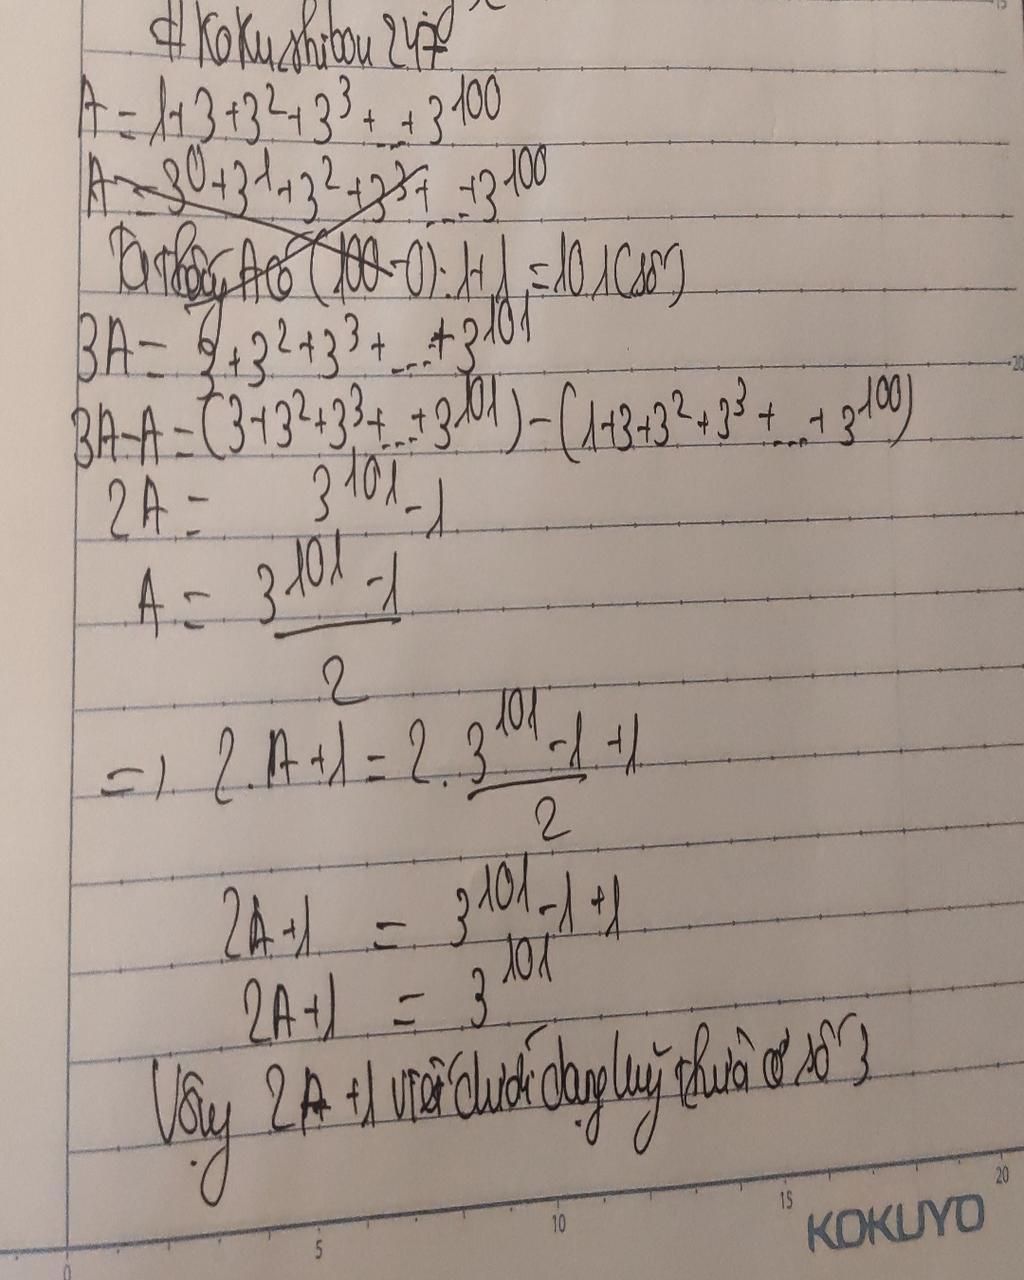 #Kokushibou247
A = 1+3+3²+3³+...+3¹⁰⁰
A = 3⁰+3¹+3²+3³+...+3¹⁰⁰
Ta thấy A có (100-0):1+1=101(số)
3A = 3+3²+3³+...+3¹⁰¹
3A-A = (3+3²+3³+...+3¹⁰¹)-(1+3+3²+3³+...+3¹⁰⁰)
2A = 3¹⁰¹-1
A = 3¹⁰¹-1
2
=). 2.A+1=2.3¹⁰¹-1+1
2
2A+1 = 3¹⁰¹-1+1
2A+1 = 3¹⁰¹
Vậy 2A+1 viết dưới dạng luỹ thừa cơ số 3
15
20
0
5
10
15
20
KOKUYO